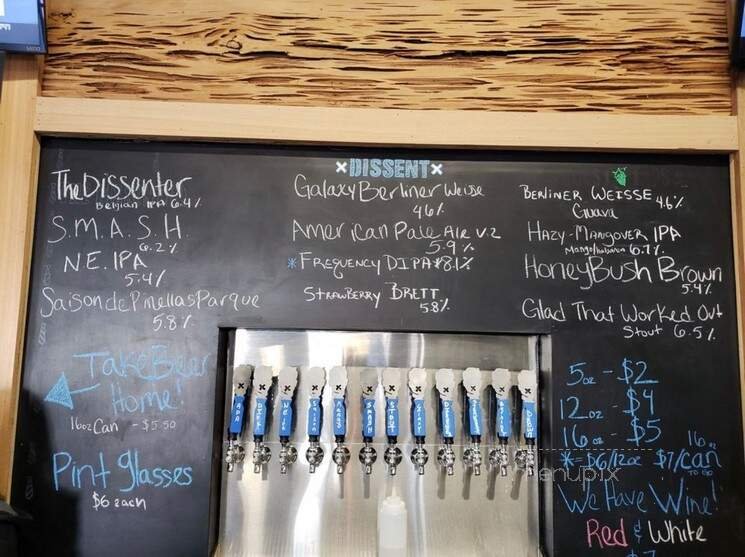 xDISSENTx
The Dissenter
Belgian IPA 6.4%
S.M.A.S.H.
6.2%
N.E. IPA
5.4%
Saison de Pinellas Parque
5.8%
Take Beer
Home!
16oz Can - $5.50
Pint glasses
$6 each
Galaxy Berliner Weisse
4.6%
American Pale Ale V.2
5.9%
*Frequency DIPA* 8.1%
Strawberry Brett
5.8%
Berliner Weisse 4.6%
Guava
Hazy-Mangover IPA
6.7%
HoneyBush Brown
5.4%
Glad That Worked Out
Stout 6.5%
5oz - $2
12oz - $4
16oz - $5
16oz
* = $6/12oz $7/can
TO GO
We Have Wine!
Red & White
menupix